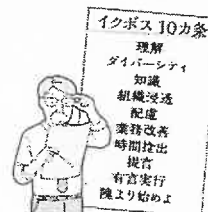 イクボス 10カ条
理解
ダイバーシティ
知識
組織浸透
配慮
業務改善
時間捻出
提言
有言実行
隗より始めよ